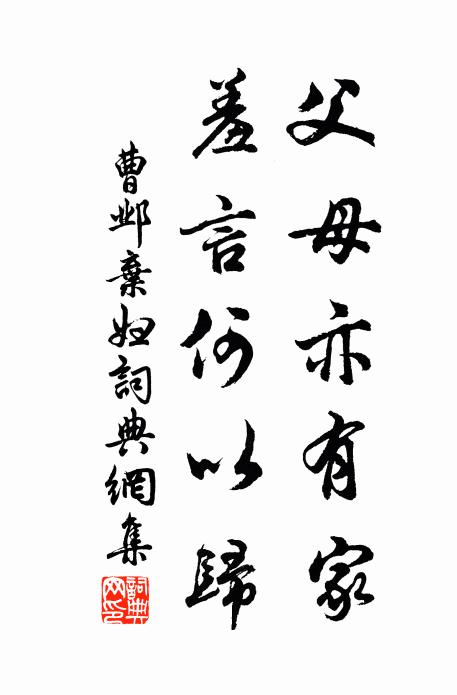 父毋亦有家
羞言何以歸
曹邺棄婦詞典網集
詞典網印